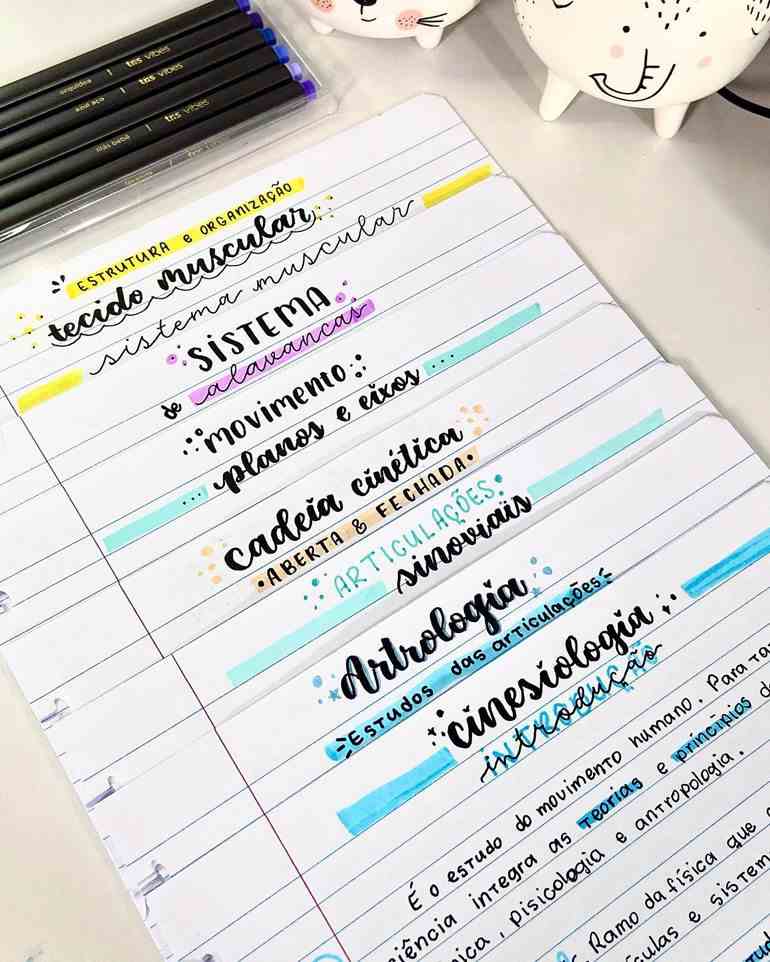 orquídea | tris vibes
azul aço | tris vibes
lilás bebê | tris vibes
ESTRUTURA e ORGANIZAÇÃO
tecido muscular
sistema muscular
SISTEMA
de alavancas
movimento
... planos e eixos ...
cadeia cinética
ABERTA & FECHADA
ARTICULAÇÕES
sinoviais
Artrologia
Estudos das articulações
cinesiologia
introdução
INTRODUÇÃO
É o estudo do movimento humano. Para
ciência integra as teorias e princípios
, pisicologia e antropologia.
Ramo da física que
e